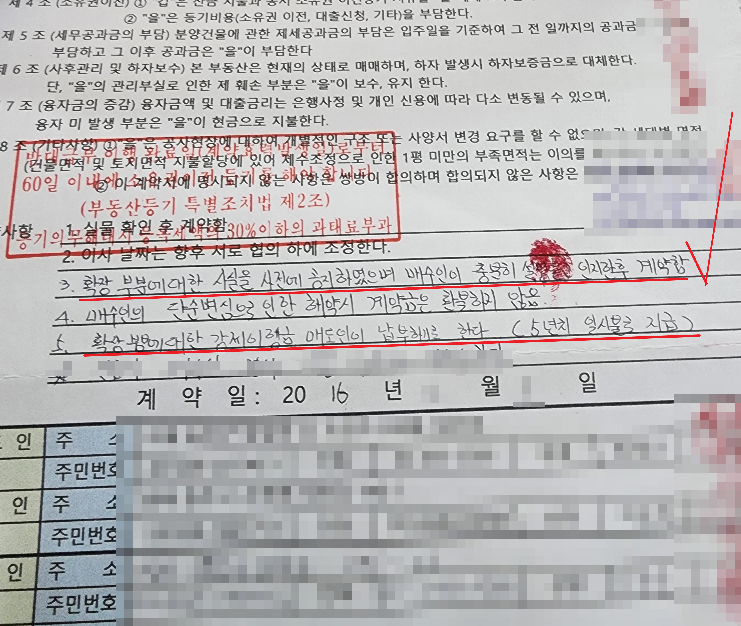 제 4 조 (소유권이전) ① "갑"은 잔금 지불과 동시
② "을"은 등기비용(소유권 이전, 대출신청, 기타)을 부담한다.
제 5 조 (세무공과금의 부담) 분양건물에 관한 제세공과금의 부담은 입주일을 기준하여 그 전 일까지의 공과금
부담하고 그 이후 공과금은 "을"이 부담한다
제 6 조 (사후관리 및 하자보수) 본 부동산은 현재의 상태로 매매하며, 하자 발생시 하자보증금으로 대체한다.
단, "을"의 관리부실로 인한 제 훼손 부분은 "을"이 보수, 유지 한다.
7 조 (융자금의 증감) 융자금액 및 대출금리는 은행사정 및 개인 신용에 따라 다소 변동될 수 있으며,
융자 미 발생 부분은 "을"이 현금으로 지불한다.
8 조 (기타사항) ① "을"은 공사현장에 대하여 개별적인 구조 또는 사양서 변경 요구를 할 수 없으며, 각 세대별 면적
(건물면적 및 토지면적 지불할당에 있어 제수조정으로 인한 1평 미만의 부족면적는 이의를
② 이 계약서에 명시되지 않는 사항은 쌍방이 합의하며 합의되지 않은 사항은
60일 이내에 소유권이전 등기를 해야 합니다
(부동산등기 특별조치법 제2조)
등기의무해태시 등록세액의 30%이하의 과태료부과
사항
1. 실물 확인 후 계약함
2. 이사 날짜는 향후 서로 협의 하에 조정한다.
3. 확장 부분에 대한 사실을 사전에 공지하였으며 매수인이 충분히 인지한후 계약함
4. 매수인의 단순변심으로 인한 해약시 계약금은 환불하지 않음.
5. 확장 부분에 대한 강제이행금 매도인이 납부해주로 한다 (5년치 일시불로 지급)
계 약 일 : 20 16 년 월 일
인 주 소
주민번호
인 주 소
주민번호
인 주 소
주민번호